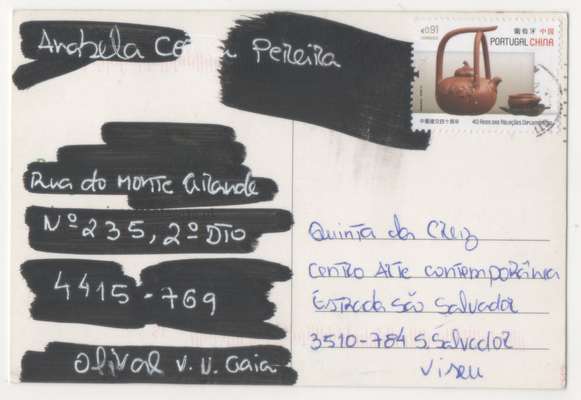 Anabela Costa Pereira
Rua do Monte Grande
Nº 235, 2º DTO
4415-769
Olival V. N. Gaia
€0,91
葡萄牙 中国
PORTUGAL CHINA
中葡建交四十周年
40 Anos das Relações Diplomáticas
Quinta da Cruz
Centro Arte contemporânea
Estrada São Salvador
3510-784 S. Salvador
Viseu